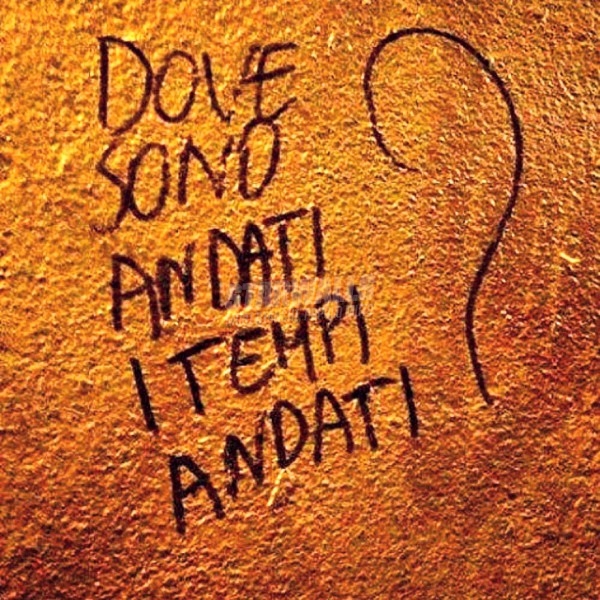 DOVE
SONO
ANDATI
I TEMPI
ANDATI ?